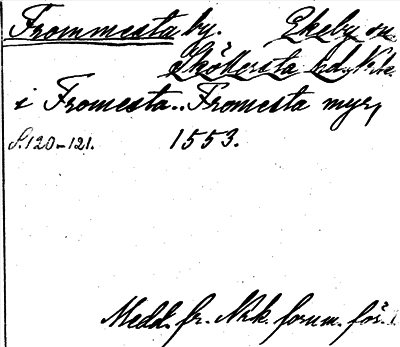 Frommesta by. Ekeby sn.
Sköllersta hd. Nke.
i Fromesta.. Fromesta myr,
S. 120-121. 1553.
Medd. fr. Nrk. fornm. för.